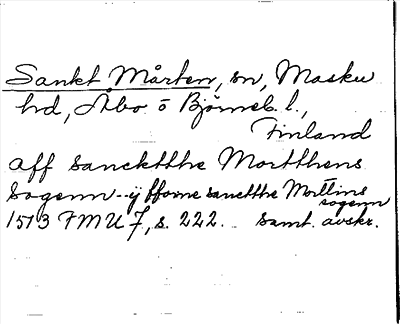 Sankt Mårten, sn, Masku
hd, Åbo o Björneb. l.,
Finland
aff sanckthe Mortthens
sogenn - ÿ fforne sanctthe Morttins sogenn
1513 FMU 7, s. 222. Samt. avskr.